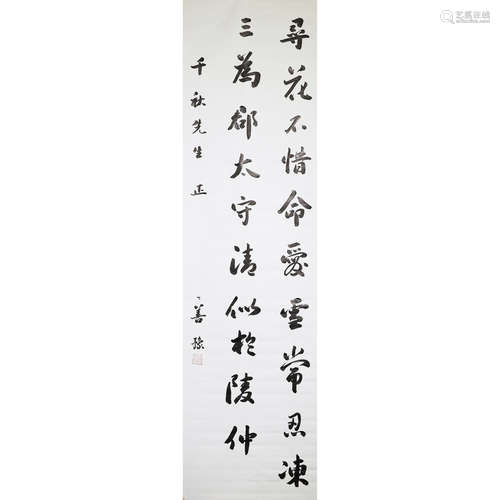 尋花不惜命愛雪常忍凍
三為郡太守清似於陵仲
千秋先生 正
善豫